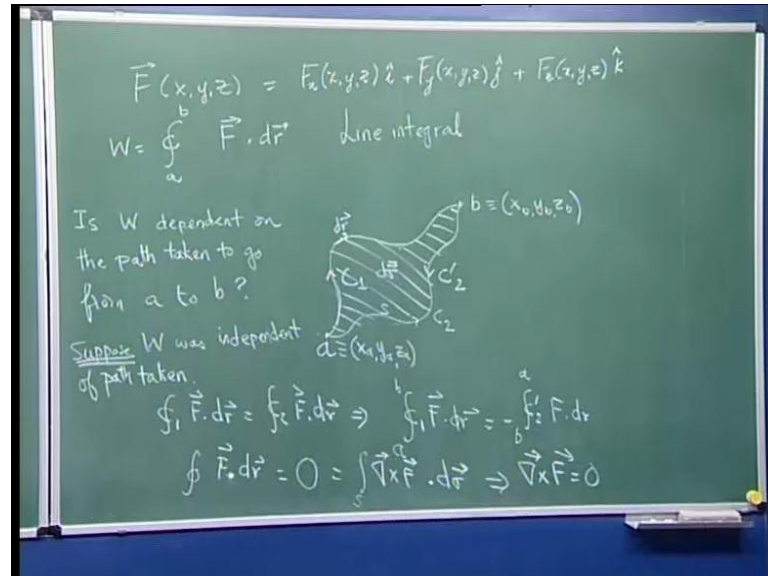 F⃗(x,y,z) = Fₓ(x,y,z) î + F_y(x,y,z) ĵ + F_z(x,y,z) k̂
W = ∮ₐᵇ F⃗ . dr⃗ Line integral
Is W dependent on
the path taken to go
from a to b?
dr⃗
b ≡ (x_b, y_b, z_b)
C₁
dσ⃗
C₂'
S
C₂
a ≡ (xₐ, yₐ, zₐ)
Suppose W was independent
of path taken.
∮₁ F⃗.dr⃗ = ∮₂ F⃗.dr⃗ ⇒ ∮₁ₐᵇ F⃗.dr⃗ = - ∮₂'_bᵃ F.dr
∮ F⃗.dr⃗ = 0 = ∫_S ∇⃗×F⃗ . dσ⃗ ⇒ ∇⃗×F⃗ = 0